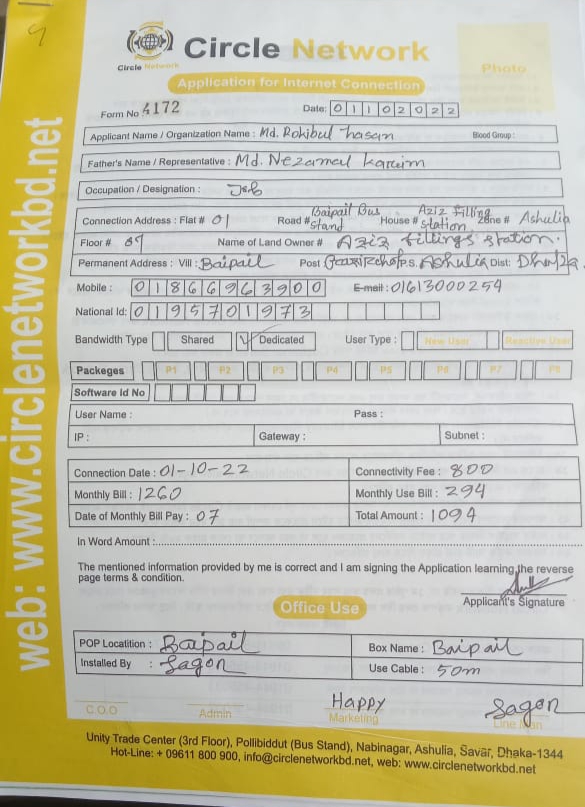 9
Circle Network
Circle Network
Photo
Application for Internet Connection
Form No 4172 Date: 01102022
Applicant Name / Organization Name : Md. Rokibul hasan Blood Group :
Father's Name / Representative : Md. Nezamul karim
Occupation / Designation : Job
Connection Address : Flat # 01 Road # Baipail Bus Stand House # Aziz Filling station Zone # Ashulia
Floor # 07 Name of Land Owner # Aziz fillings station.
Permanent Address : Vill : Baipail Post P.S. Ashulia Dist: Dhaka
Mobile : 01866963900 E-mail : 01613000254
National Id: 0195701973
Bandwidth Type Shared ✓ Dedicated User Type : New User Reactive User
Packeges P1 P2 P3 P4 P5 P6 P7 P8
Software Id No
User Name : Pass :
IP : Gateway : Subnet :
Connection Date : 01-10-22 Connectivity Fee : 800
Monthly Bill : 1260 Monthly Use Bill : 294
Date of Monthly Bill Pay : 07 Total Amount : 1094
In Word Amount :
The mentioned information provided by me is correct and I am signing the Application learning the reverse
page terms & condition.
Applicant's Signature
Office Use
POP Locatition : Baipail Box Name : Baipail
Installed By : Sagor Use Cable : 50m
Happy Sagor
C.O.O Admin Marketing Line Man
Unity Trade Center (3rd Floor), Pollibiddut (Bus Stand), Nabinagar, Ashulia, Savar, Dhaka-1344
Hot-Line: + 09611 800 900, info@circlenetworkbd.net, web: www.circlenetworkbd.net
web: www.circlenetworkbd.net